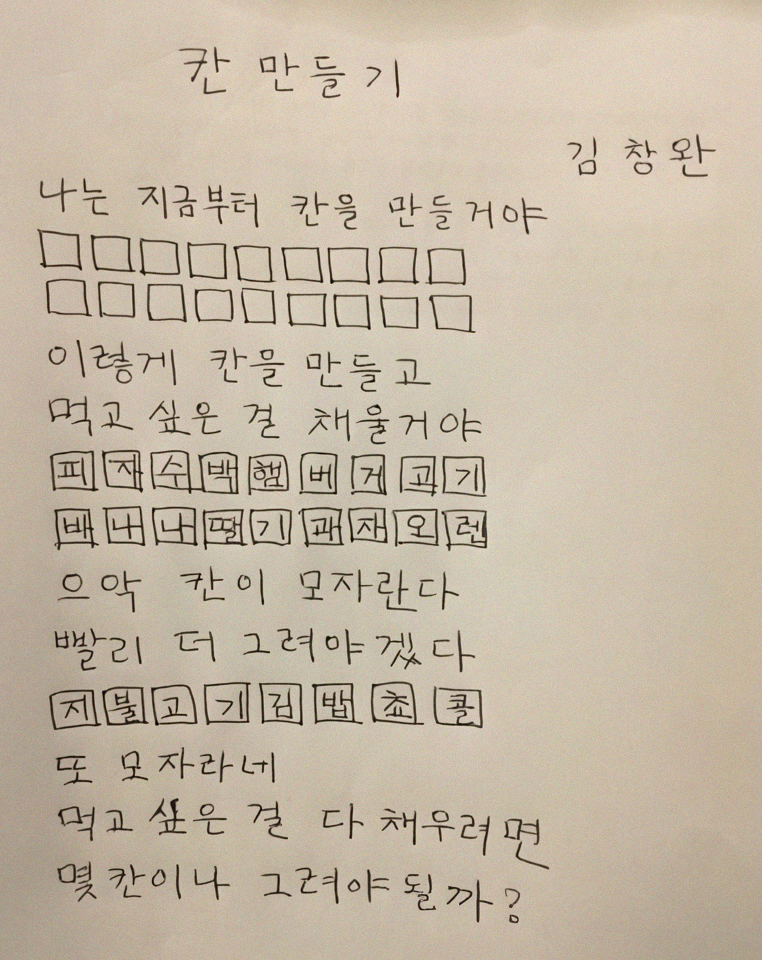 칸 만들기
김창완
나는 지금부터 칸을 만들거야
이렇게 칸을 만들고
먹고 싶은 걸 채울거야
피자수박햄버거과기
배나나딸기과재오렌
으악 칸이 모자란다
빨리 더 그려야겠다
지불고기김밥쵸콜
또 모자라네
먹고 싶은 걸 다 채우려면
몇칸이나 그려야될까?